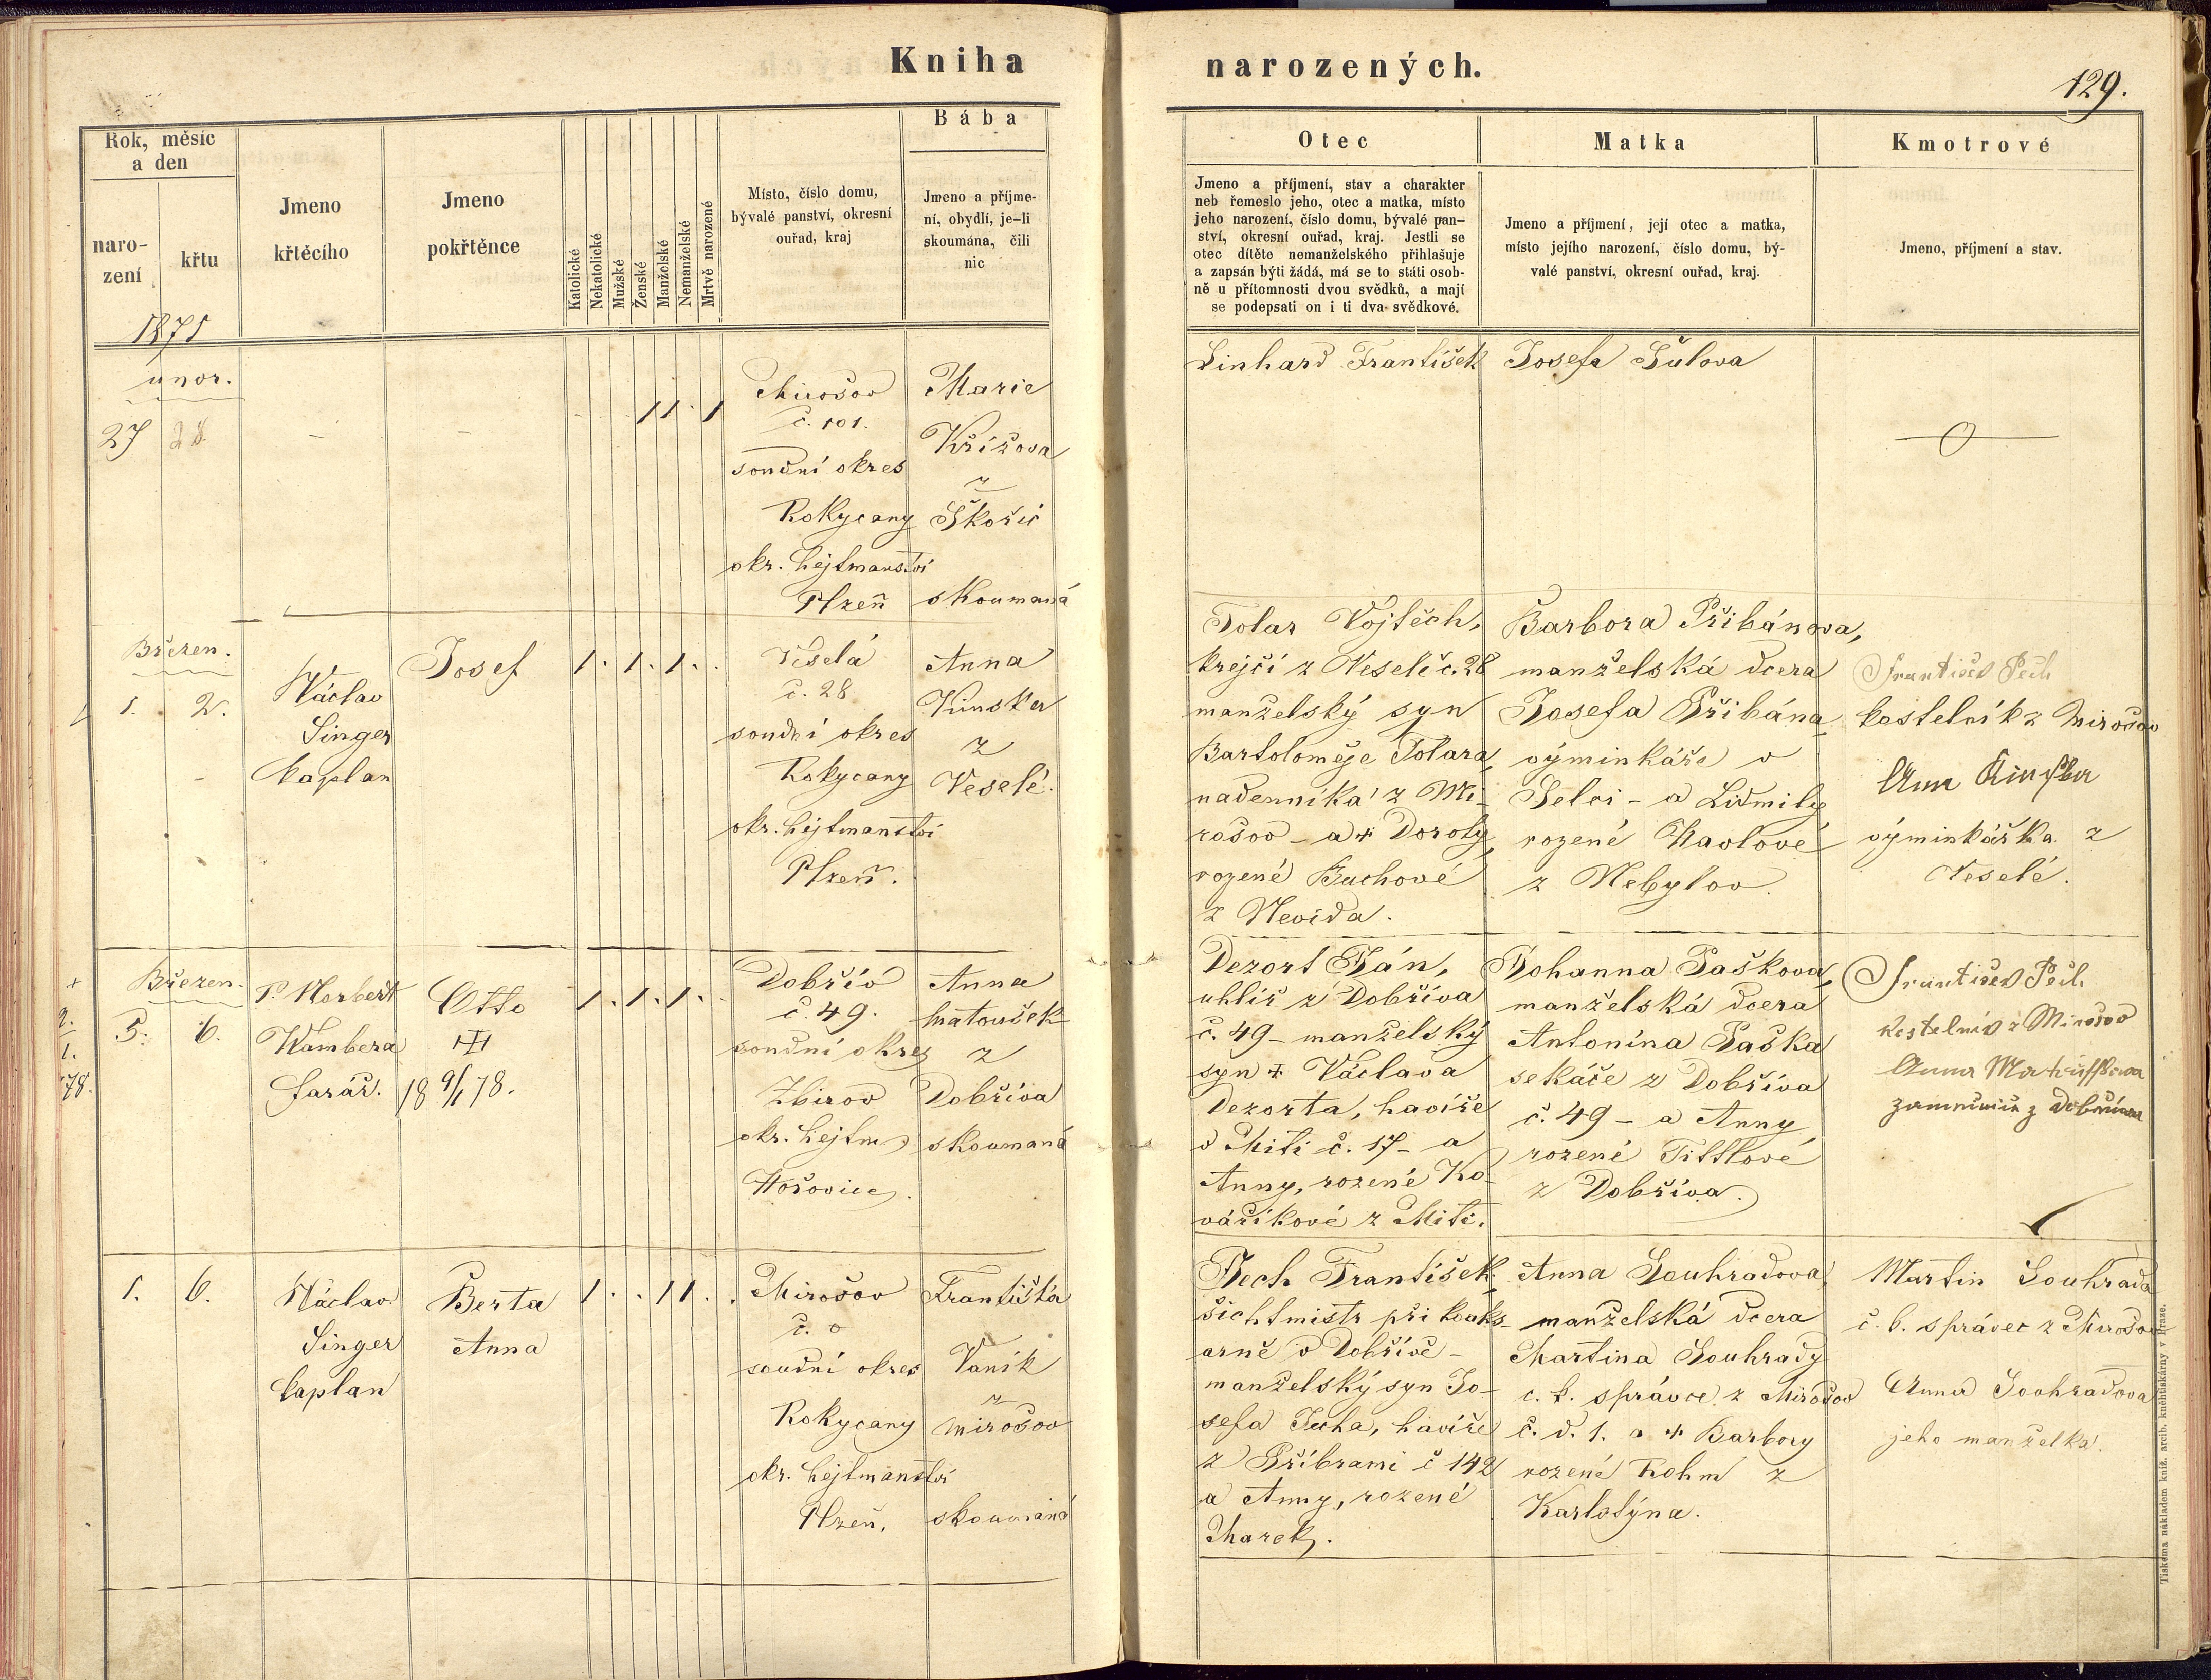 Kniha narozených.
129.
Rok, měsíc
a den
naro-
zení
křtu
Jmeno
křtěcího
Jmeno
pokřtěnce
Katolické
Nekatolické
Mužské
Ženské
Manželské
Nemanželské
Mrtvě narozené
Místo, číslo domu,
bývalé panství, okresní
ouřad, kraj
Bába
Jmeno a příjme-
ní, obydlí, je-li
skoumána, čili
nic
Otec
Jmeno a příjmení, stav a charakter
neb řemeslo jeho, otec a matka, místo
jeho narození, číslo domu, bývalé pan-
ství, okresní ouřad, kraj. Jestli se
otec dítěte nemanželského přihlašuje
a zapsán býti žádá, má se to státi osob-
ně u přítomnosti dvou svědků, a mají
se podepsati on i ti dva svědkové.
Matka
Jmeno a příjmení, její otec a matka,
místo jejího narození, číslo domu, bý-
valé panství, okresní ouřad, kraj.
Kmotrové
Jmeno, příjmení a stav.
1871
unor.
27 28.
- -
1 1 . 1
Mirošov
č. 101.
soudní okres
Rokycany
okr. hejtmanství
Plzeň
Marie
Křížova
z
Skořic
skoumaná
Linhard František
Josefa Šulova
Březen.
1. 2.
Václav
Singer
kaplan
Josef
1. 1. 1.
Veselá
č. 28
soudní okres
Rokycany
okr. hejtmanství
Plzeň.
Anna
Kunska
z
Veselé.
Tolar Vojtěch,
krejčí z Veselé č. 28
manželský syn
Bartoloměje Tolara,
nadenníka z Mi-
rošov - a + Doroty,
rozené Buchové
z Nevida.
Barbora Přibánova,
manželská dcera
Josefa Přibána,
výminkáře v
Selci - a Lidmily
rozené Havlové
z Nebylov.
František Pech
kostelník z Mirošov
Anna
výminkářka z
Veselé.
+
9.
1.
78.
Březen.
5. 6.
P. Norbert
Wambera
farář.
Otto
18 9/1 78.
1. 1. 1.
Dobřív
č. 49.
soudní okres
Zbirov
okr. hejtm.
Hořovice.
Anna
Matoušek
z
Dobříva
skoumaná
Dezort Ján,
uhlíř z Dobříva
č. 49 - manželský
syn + Václava
Dezorta, havíře
v Miti č. 17 - a
Anny, rozené Ko-
váříkové z Miti.
Johanna Paškova,
manželská dcera
Antonína Paška
sekáče z Dobříva
č. 49 - a Anny
rozené Tittlové
z Dobříva.
František Pech
kostelník z Mirošov
Anna
z Dobříva
1. 6.
Václav
Singer
kaplan
Berta
Anna
1. . 1 1 . .
Mirošov
č. 0
soudní okres
Rokycany
okr. hejtmanství
Plzeň.
Františka
Vaník
z
Mirošov
skoumaná
Pech František,
šichtmistr při koaks-
arně v Dobřívě -
manželský syn Jo-
sefa Pecha, havíře
z Příbrami č 142
a Anny, rozené
Marek.
Anna Souhradova,
manželská dcera
Martina Souhrady
c. k. správce z Mirošov
č. d. 1. a + Barbory
rozené Rohm z
Karlotýna.
Martin Souhrada
č. b. správec z Mirošov
Anna Souhradova
jeho manželka.
Tiskema nákladem kníž. arcib. kněhtiskárny v Praze.